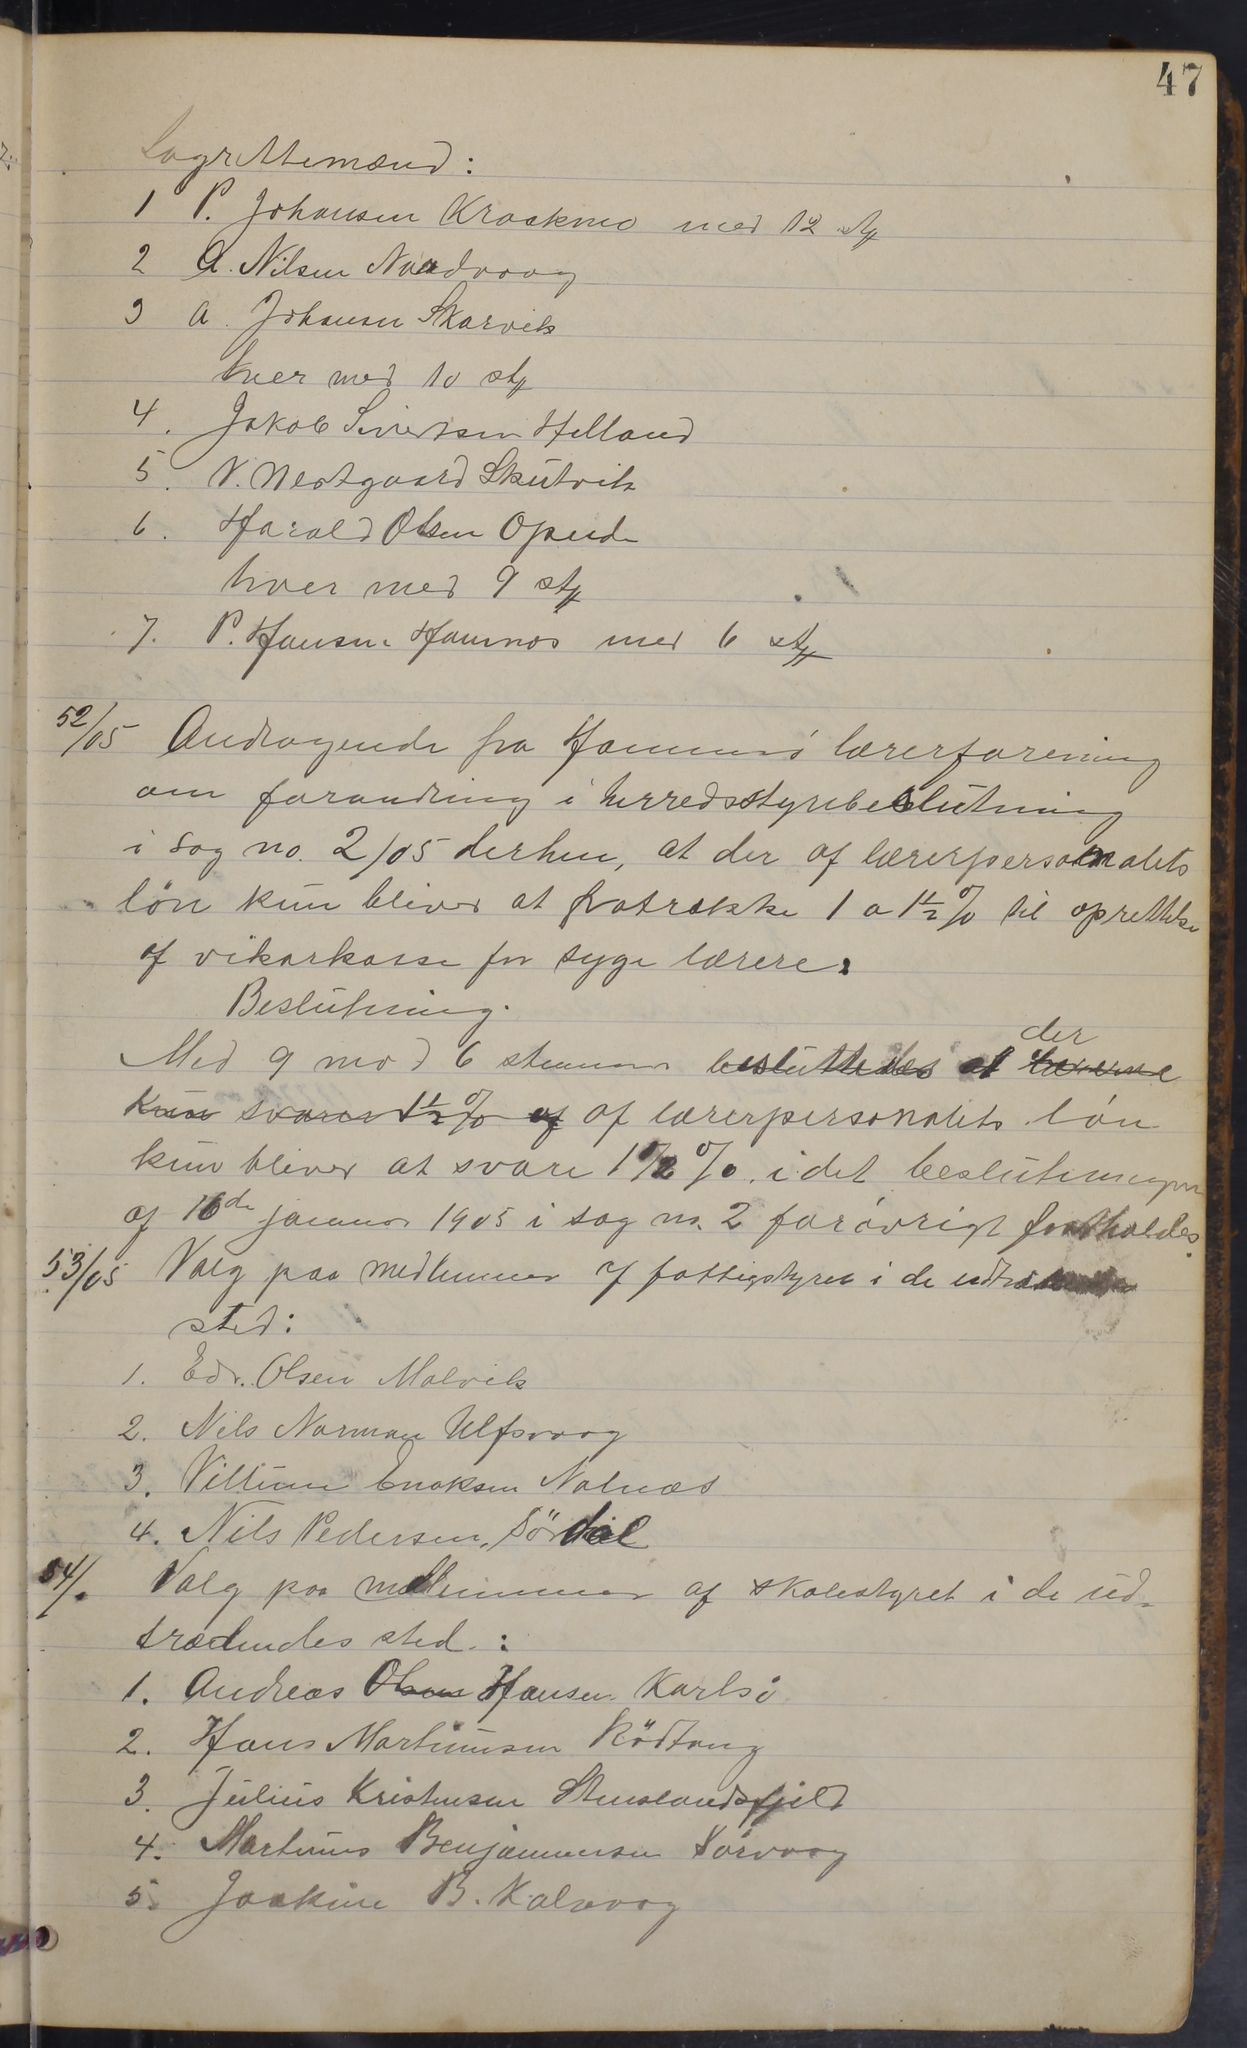 47
Lagrettemænd:
1 P. Johansen Kraakmo med 12 st
2 A. Nilsen Naadvaag
3 A. Johansen Skarvik
hver med 10 st
4. Jakob Sivertsen Helland
5. N. Nestgaard Skutvik
6. Harald Olsen Opeide
hver med 9 st
7. P. Hansen Hamnes med 6 st
52/05 Andragende fra Hammerø lærerforening
om forandring i herredsstyrebeslutning
i sag no. 2/05 derhen, at der af lærerpersonalets
løn kun bliver at fratrække 1 a 1½% til oprettelse
af vikarkasse for syge lærere.
Beslutning.
der
Med 9 mod 6 stemmer besluttedes at lærerne
kun svarer 1½% af af lærerpersonalets løn
kun bliver at svare 1½%, idet beslutningen
af 16de januar 1905 i sag no. 2 forøvrigt fastholdes.
53/05 Valg paa medlemmer af fattigstyret i de
sted:
1. Edv. Olsen Malvik
2. Nils Norman Ulfsvaag
3. Villum Enoksen Nalnæs
4. Nils Pedersen, Sørdal
54/. Valg paa medlemmer af skolestyret i de ud-
trædendes sted:
1. Andreas Olsen Hansen Karlsø
2. Hans Martinusen Rødtang
3. Julius Kristensen Stenslandsfjeld
4. Martinus Benjaminsen Sørvaag
5. Joakim B. Kalvaag